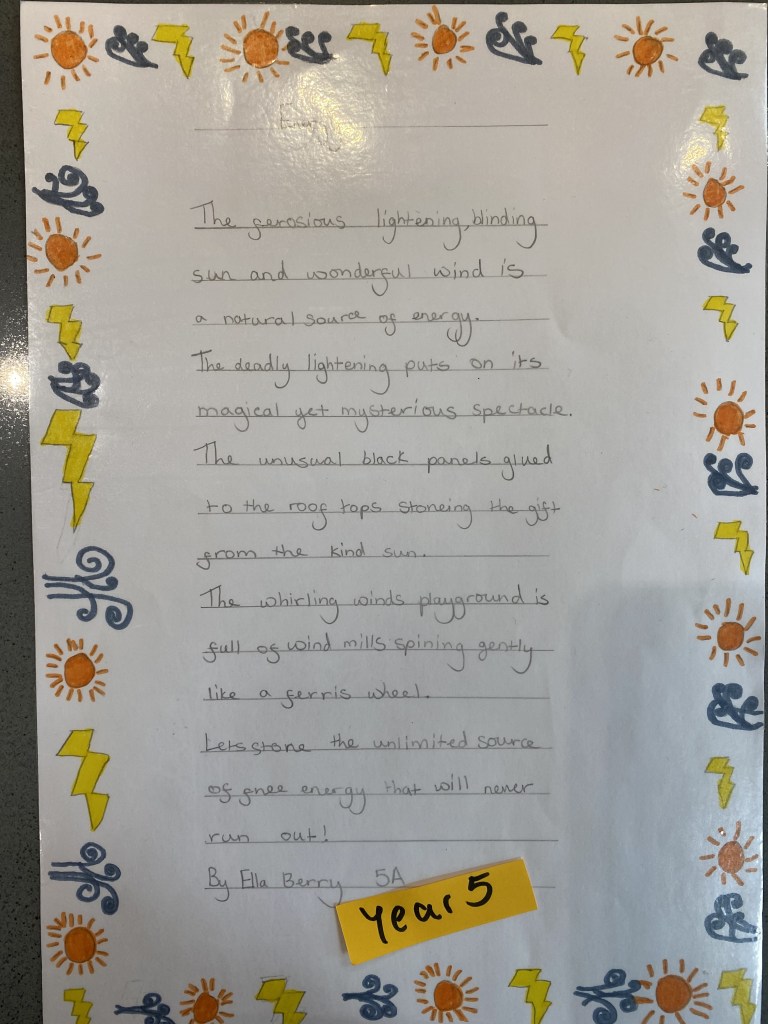 The ferosious lightening, blinding
sun and wonderful wind is
a natural source of energy.
The deadly lightening puts on its
magical yet mysterious spectacle.
The unusual black panels glued
to the roof tops storeing the gift
from the kind sun.
The whirling winds playground is
full of wind mills spining gently
like a ferris wheel.
Lets store the unlimited source
of free energy that will never
run out!
By Ella Berry 5A
year 5